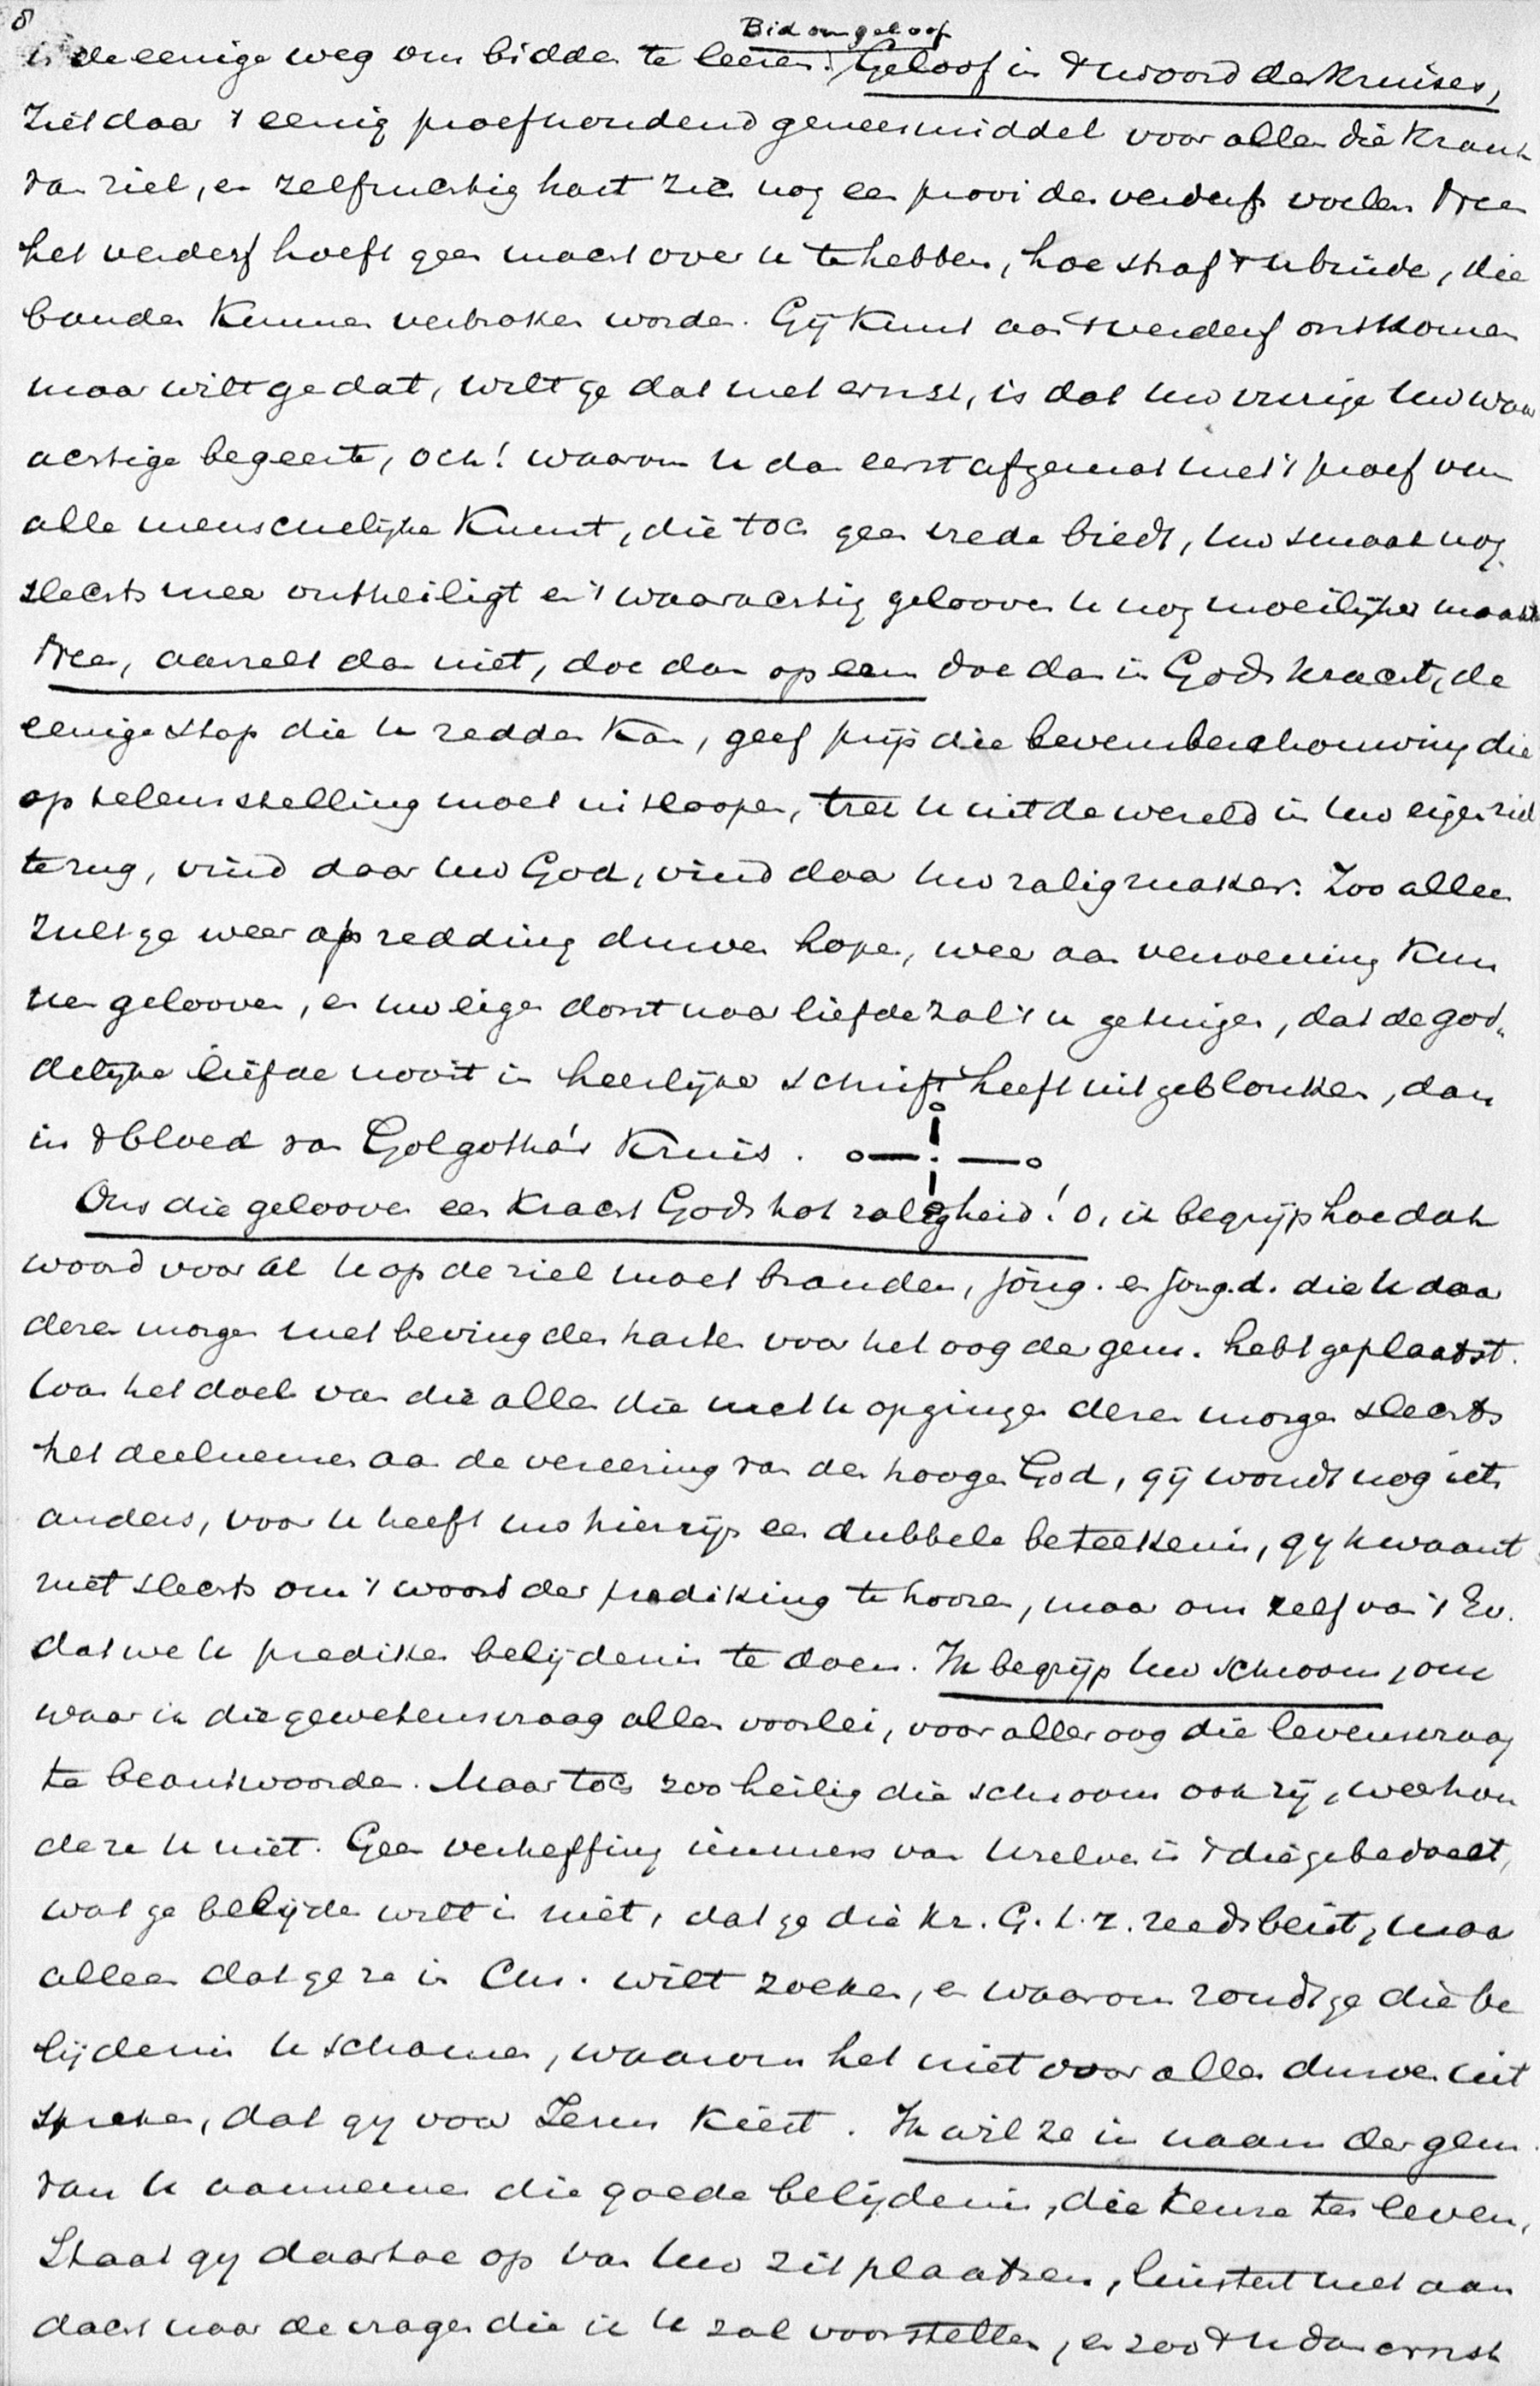 8
Bid om geloof
is de eenige weg om bidden te leeren. Geloof in 't woord des Kruises,
Ziet daar 't eenig proefhoudend geneesmiddel voor allen die krank
van ziel, en zelfzuchtig hart zich nog een prooi des verderfs voelen Neen
het verderf hoeft geen macht over u te hebben, hoe straf 't u binde, die
banden kunnen verbroken worden. Gij kunt aan 't verderf ontkomen
maar wilt ge dat, wilt ge dat met ernst, is dat uw vurige uw waar
achtige begeerte, och! waarom u dan eerst afgemat met 't proef van
alle menschelijke Kunst, die toch geen vrede biedt, uw smaak nog
slechts meer ontheiligt en 't waarachtig gelooven u nog moeilijker maakt
Neen, aarzelt dan niet, doe dan op eens doe dan in Gods kracht, de
eenige stap die u redden kan, geef prijs die levensbeschouwing die
op teleurstelling moet uitloopen, trek u uit de wereld in uw eigen ziel
terug, vind daar uw God, vind daar uw zaligmaker. Zoo alleen
zult ge weer op redding durven hopen, weer aan verzoening kun
nen gelooven, en uw eigen dorst naar liefde zal 't u getuigen, dat de god„
delijke liefde nooit in heerlijker schrift heeft uitgeblonken, dan
in 't bloed van Golgotha's Kruis.
Ons die gelooven een kracht Gods tot zaligheid! O, ik begrijp hoe dat
woord vooral u op de ziel moet branden, jong. en jong.d. die u daar
dezen morgen met beving des harten voor het oog der gem. hebt geplaatst.
Was het doel van die allen die met u opgingen dezen morgen slechts
het deelnemen aan de vereering van den hoogen God, gij woudt nog iets
anders, voor u heeft uw hierzijn een dubbele beteekenis, gy kwaamt
niet slechts om 't woord der prediking te hooren, maar om zelf van 't Ev.
dat we u prediken belijdenis te doen. Ik begrijp uw schroom, om
waar ik die gewetensvraag allen voorlei, voor aller oog die levensvraag
te beantwoorden. Maar toch zoo heilig die schroom ook zij, weerhou
de ze u niet. Geen verheffing immers van uzelven is 't die ge bedoelt,
wat ge belijden wilt is niet, dat ge die kr. G. t. z. reeds bezit, maar
alleen dat ge ze in Chr. wilt zoeken, en waarom zoudt ge die be
lijdenis u schamen, waarom het niet voor allen durven uit
spreken, dat gy voor Jezus kiest. Ik wil ze in naam der gem.
van u aannemen die goede belijdenis, die keuze ten leven,
Staat gy daartoe op van uw zitplaatsen, luistert met aan
dacht naar de vragen die ik u zal voorstellen, en zoo 't u dan ernst